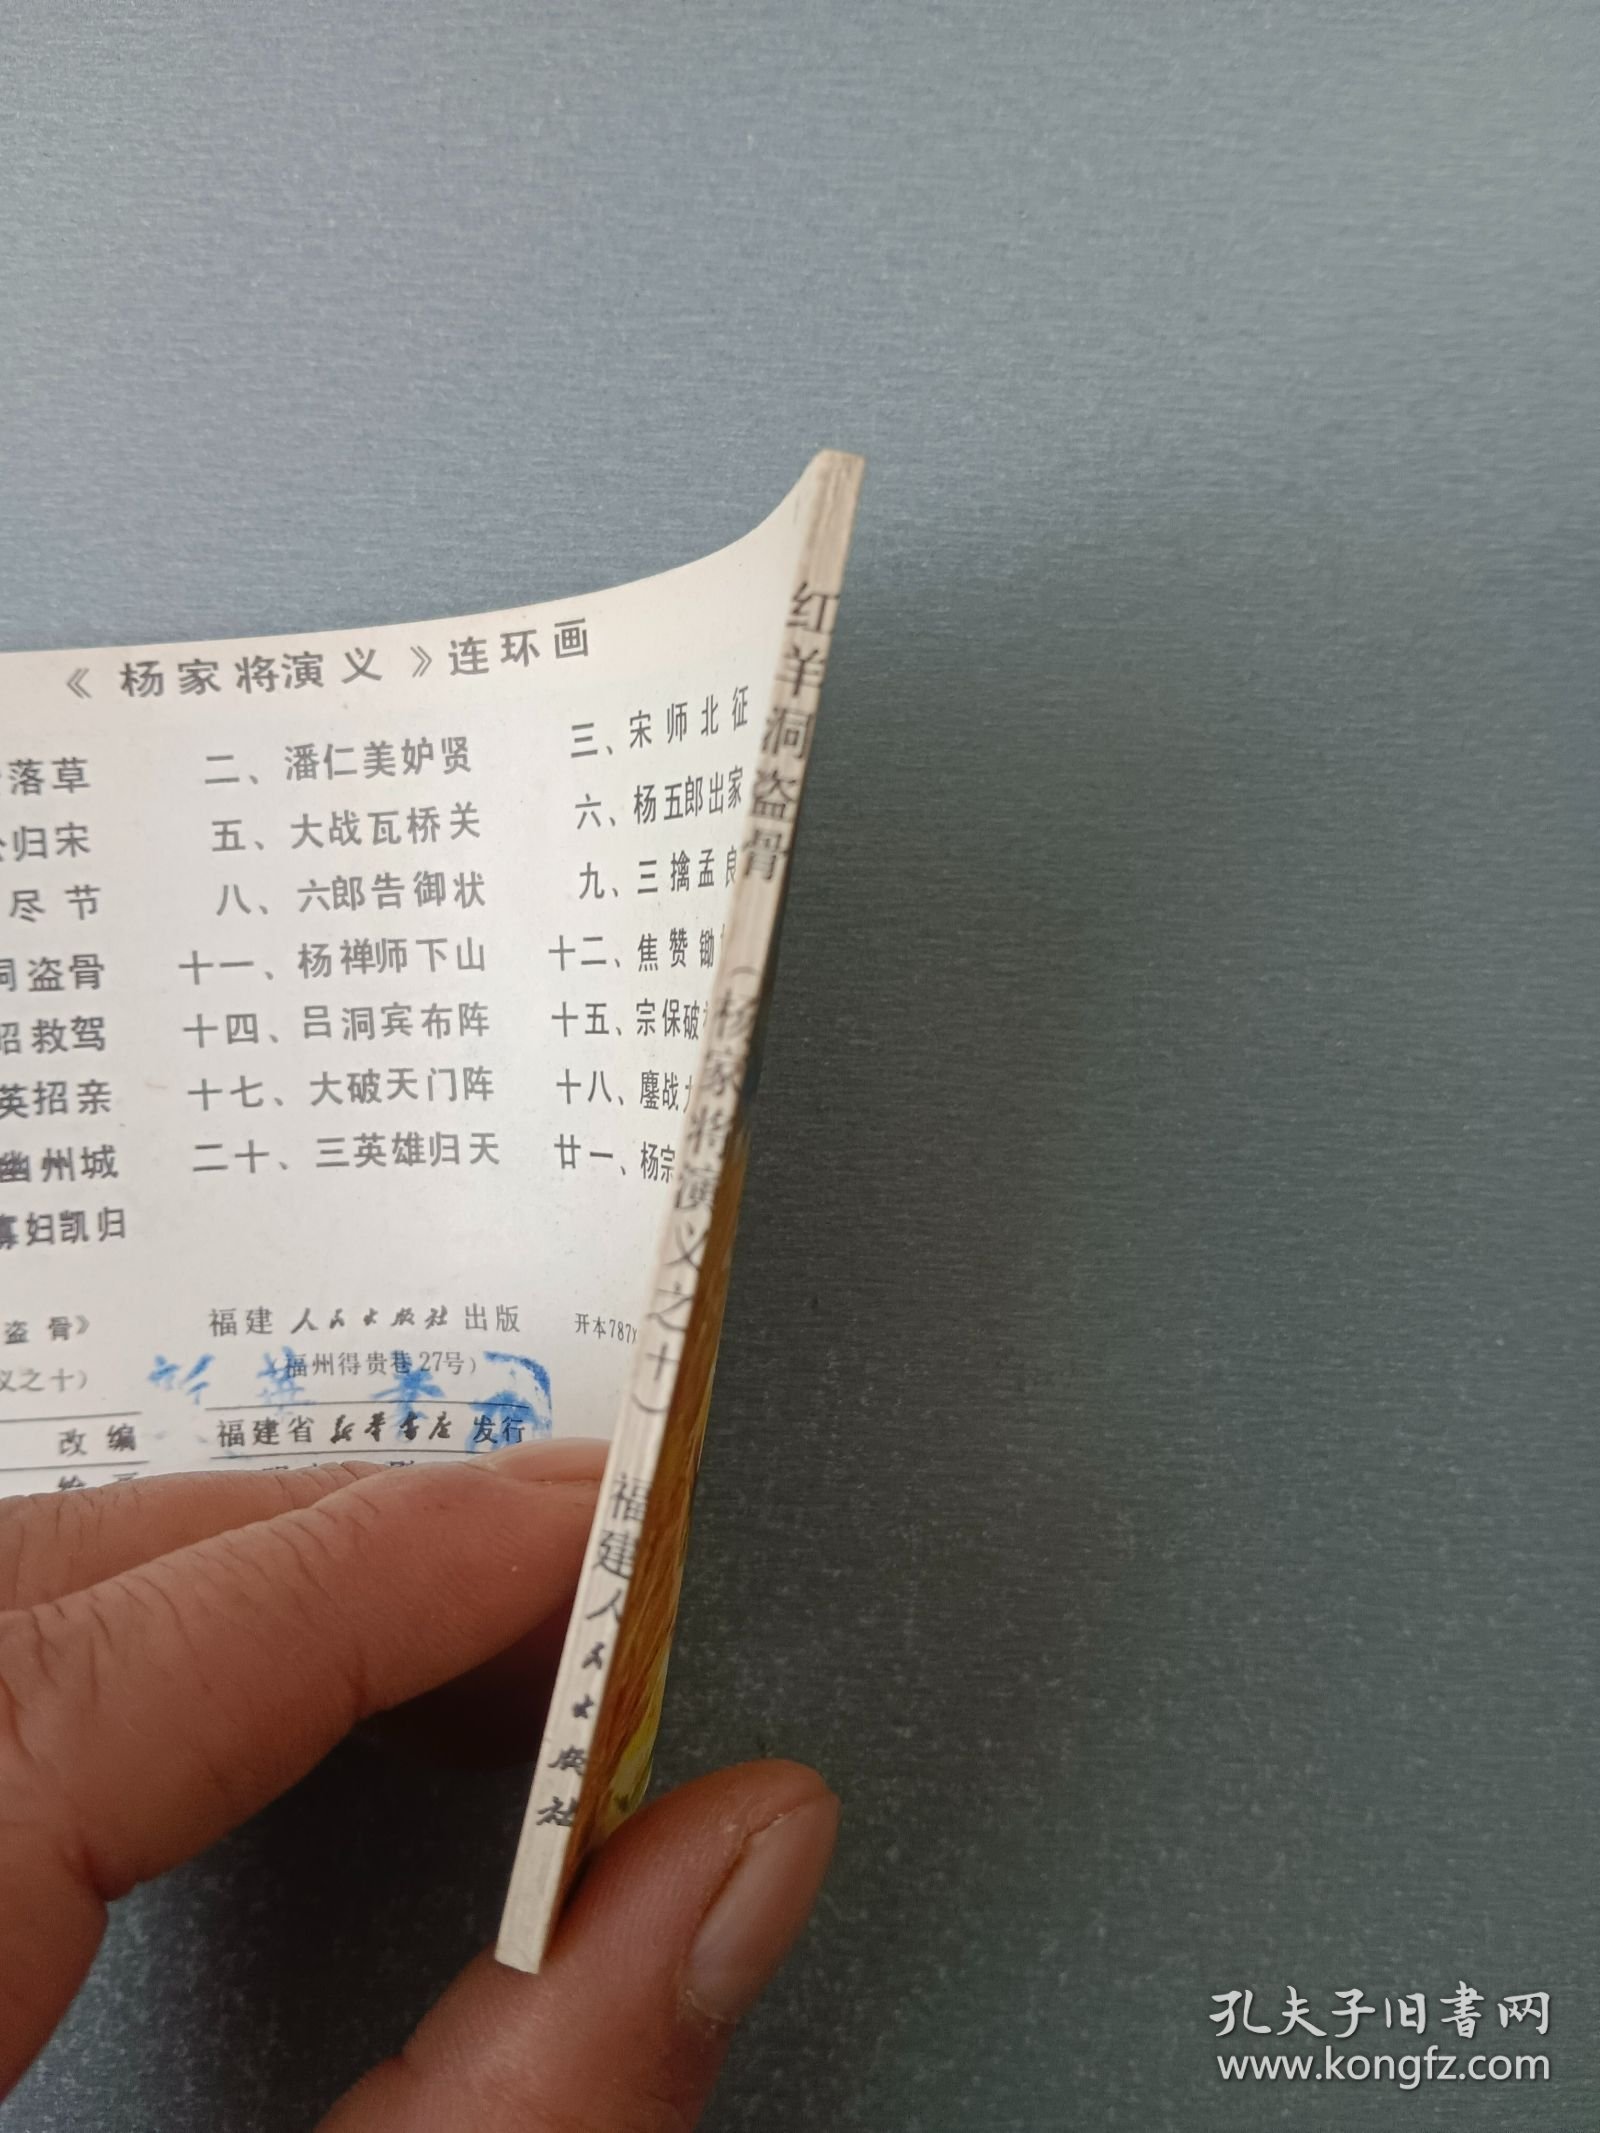 《杨家将演义》连环画
落草 二、潘仁美妒贤 三、宋师北征
归宋 五、大战瓦桥关 六、杨五郎出家
尽节 八、六郎告御状 九、三擒孟良
盗骨 十一、杨禅师下山 十二、焦赞锄
救驾 十四、吕洞宾布阵 十五、宗保破
英招亲 十七、大破天门阵 十八、鏖战
幽州城 二十、三英雄归天 廿一、杨宗
寡妇凯归
盗骨》 福建人民出版社出版 开本787×
义之十） （福州得贵巷27号）
改编 福建省新华书店发行
红羊洞盗骨（杨家将演义之十） 福建人民出版社
孔夫子旧书网
www.kongfz.com